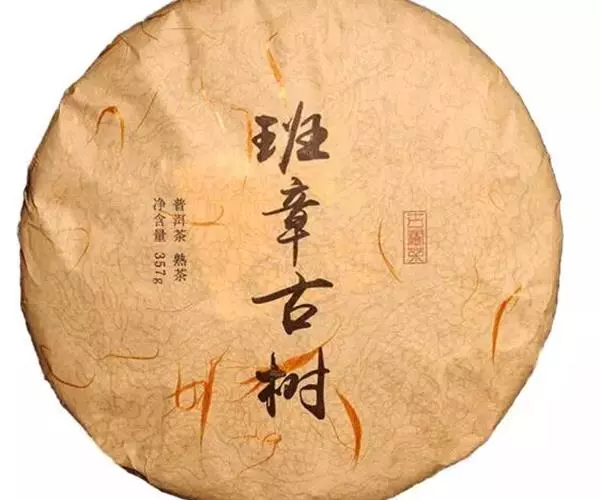 班章古树
普洱茶 熟茶
净含量 357g